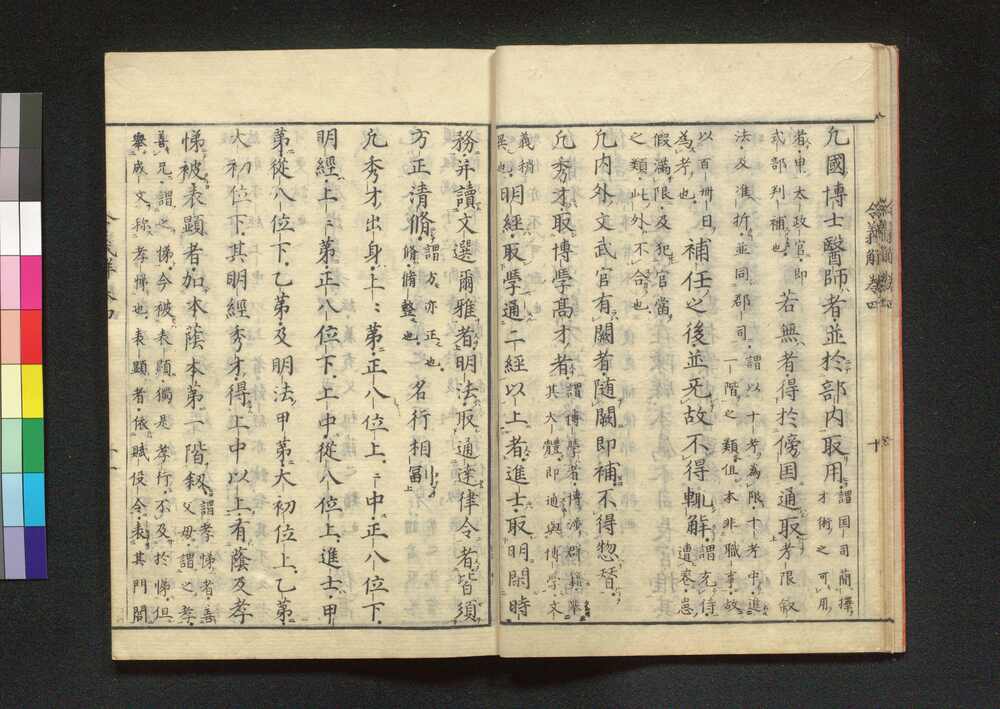 令義解卷四
十
凢國博士醫師者並於部内取用
謂国司簡擇
才術之可用
者申太政官即
式部判補也
若無者得於傍国通取考限叙
法及准折並同郡司
謂以十考為限十考中進
一階之類但本非職事故
以百卌日
為考也
補任之後並无故不得輙解
謂充侍
遭喪患
假滿限及犯官當
之類此外不合也
凢内外文武官有闕者随闕即補不得愆稽
凢秀才取博學髙才者
謂博學者博涉群籍畢
其大體即通與博学文
義稍
異也
明経取學通二経以上者進士取明閑時
務并讀文選爾雅者明法取通達律令者皆須
方正清脩
謂方亦正也
脩脩整也
名行相副
凢秀才出身上〻第正八位上〻中正八位下
明經上上第正八位下上中從八位上進士甲
第從八位下乙第及明法甲第大初位上乙第
大初位下其明經秀才得上中以上有蔭及孝
悌被表顯者加本蔭本第一階叙
謂孝悌者善
父母謂之孝
善兄謂之悌今被表顯獨是孝行不及於悌但
舉成文称孝悌也表顯者依賦役令表其門閭